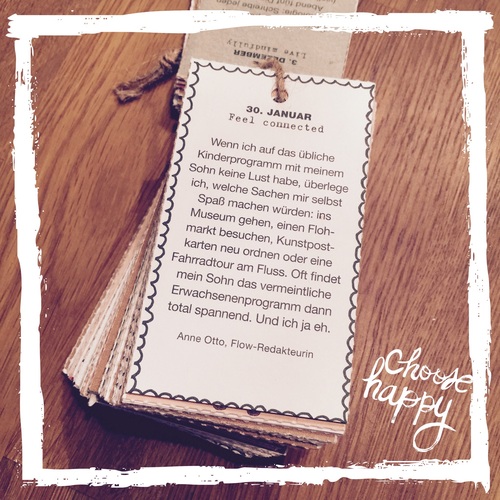 Abend fünf
Schreibe jeden
3. DEZEMBER
Live mindfully
30. JANUAR
Feel connected
Wenn ich auf das übliche
Kinderprogramm mit meinem
Sohn keine Lust habe, überlege
ich, welche Sachen mir selbst
Spaß machen würden: ins
Museum gehen, einen Floh-
markt besuchen, Kunstpost-
karten neu ordnen oder eine
Fahrradtour am Fluss. Oft findet
mein Sohn das vermeintliche
Erwachsenenprogramm dann
total spannend. Und ich ja eh.
Anne Otto, Flow-Redakteurin
choose
happy